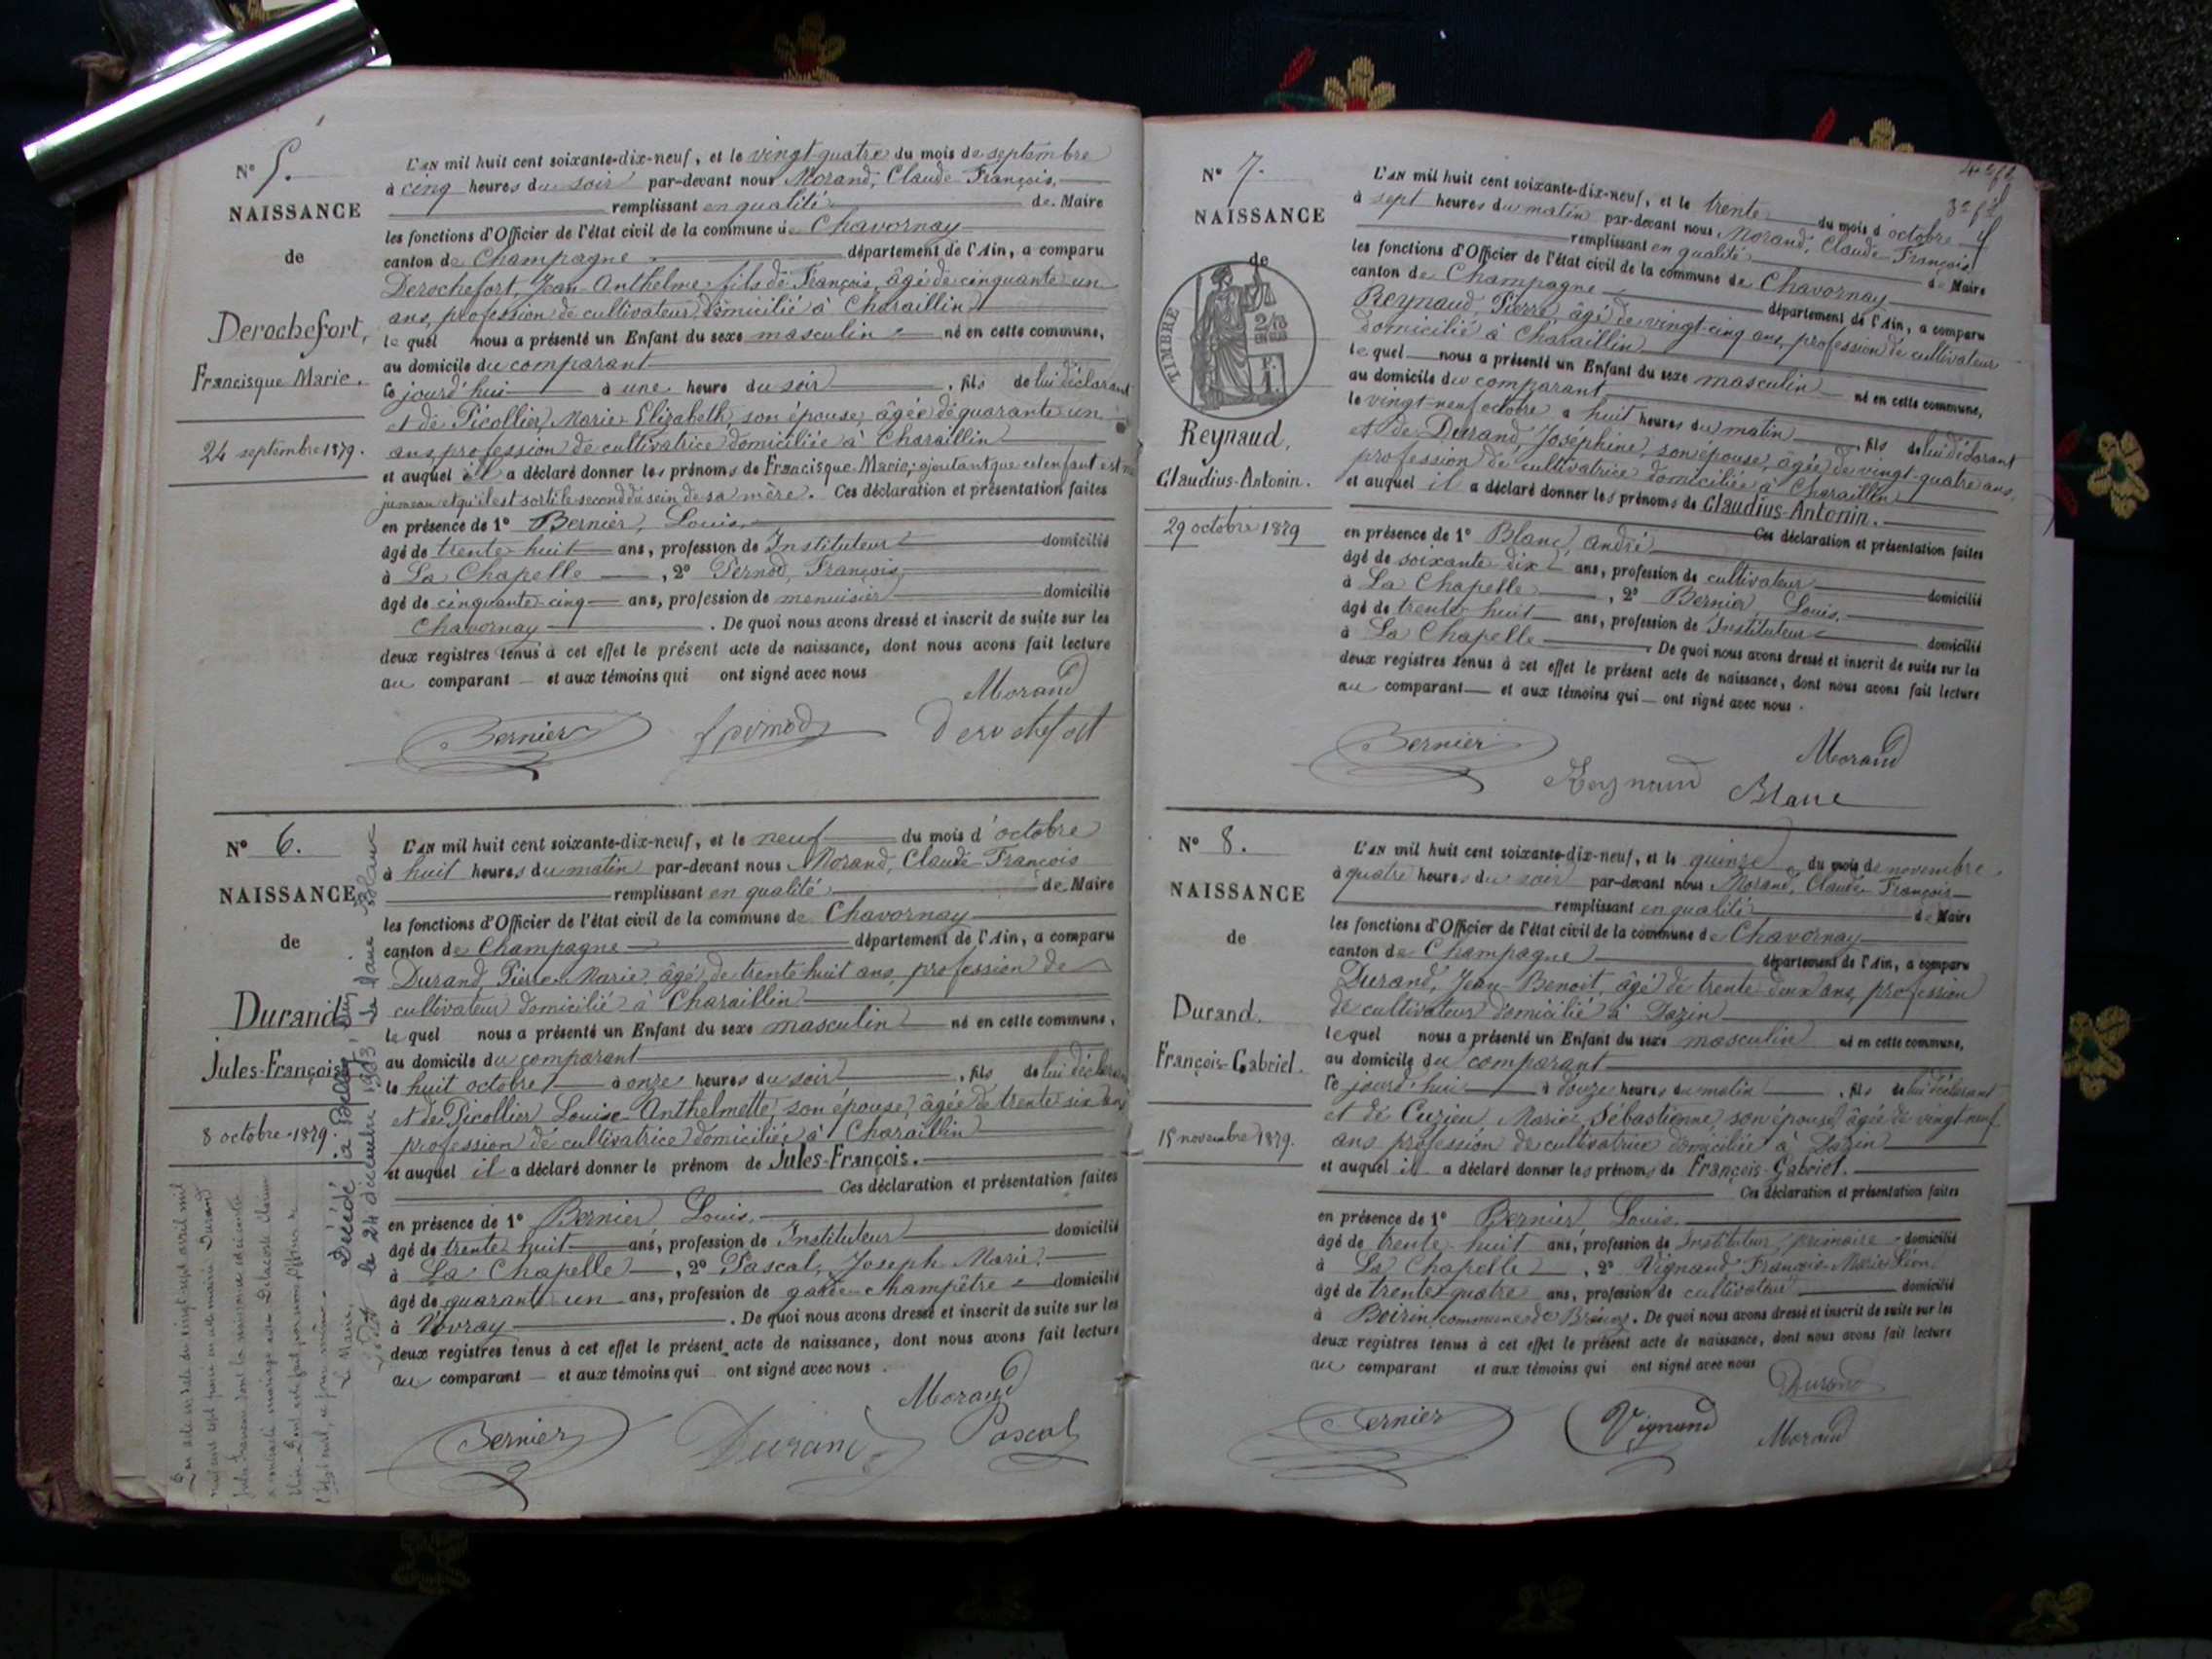 N° 5.
NAISSANCE
de
Derochefort,
Francisque Marie.
24 septembre 1879.
L'AN mil huit cent soixante-dix-neuf, et le vingt-quatre du mois de septembre
à cinq heures du soir par-devant nous Morand, Claude François,
remplissant en qualité de Maire
les fonctions d'Officier de l'état civil de la commune de Chavornay
canton de Champagne département de l'Ain, a comparu
Derochefort, Jean Anthelme, fils de François, âgé de cinquante un
ans, profession de cultivateur domicilié à Charaillin
le quel nous a présenté un Enfant du sexe masculin né en cette commune,
au domicile du comparant
ce jourd'hui à une heure du soir, fils de lui déclarant
et de Picollier, Marie Elizabeth, son épouse, âgée de quarante un
ans, profession de cultivatrice domiciliée à Charaillin
et auquel il a déclaré donner les prénoms de Francisque Marie; ajoutant que cet enfant est né
jumeau et qu'il est sorti le second du sein de sa mère. Ces déclaration et présentation faites
en présence de 1° Bernier, Louis,
âgé de trente huit ans, profession de Instituteur domicilié
à La Chapelle, 2° Pernod, François,
âgé de cinquante-cinq ans, profession de menuisier domicilié
Chavornay. De quoi nous avons dressé et inscrit de suite sur les
deux registres tenus à cet effet le présent acte de naissance, dont nous avons fait lecture
au comparant et aux témoins qui ont signé avec nous
Morand
Bernier fpernod derochefort
N° 6.
NAISSANCE
de
Durand
Jules-François
8 octobre 1879.
L'AN mil huit cent soixante-dix-neuf, et le neuf du mois d'octobre
à huit heures du matin par-devant nous Morand, Claude François
remplissant en qualité de Maire
les fonctions d'Officier de l'état civil de la commune de Chavornay
canton de Champagne département de l'Ain, a comparu
Durand, Pierre-Marie, âgé de trente huit ans, profession de
cultivateur domicilié à Charaillin
le quel nous a présenté un Enfant du sexe masculin né en cette commune,
au domicile du comparant
le huit octobre à onze heures du soir, fils de lui déclarant
et de Picollier Louise Anthelmette, son épouse, âgée de trente six ans
profession de cultivatrice domiciliée à Charaillin
et auquel il a déclaré donner le prénom de Jules-François.
Ces déclaration et présentation faites
en présence de 1° Bernier, Louis,
âgé de trente huit ans, profession de Instituteur domicilié
à La Chapelle, 2° Pascal, Joseph Marie,
âgé de quarante un ans, profession de garde-champêtre domicilié
à Vovray. De quoi nous avons dressé et inscrit de suite sur les
deux registres tenus à cet effet le présent acte de naissance, dont nous avons fait lecture
au comparant et aux témoins qui ont signé avec nous.
Morand
Bernier Durand Pascal
Par acte en date du vingt sept avril mil
Durand
Jules François
a contracté mariage avec
Le Maire
Décédé à Belley
le 24 décembre 1963
Le Maire Blanc
N° 7.
NAISSANCE
de
TIMBRE
Reynaud,
Claudius-Antonin.
29 octobre 1879
L'AN mil huit cent soixante-dix-neuf, et le trente du mois d'octobre
à sept heures du matin par-devant nous Morand, Claude François
remplissant en qualité de Maire
les fonctions d'Officier de l'état civil de la commune de Chavornay
canton de Champagne département de l'Ain, a comparu
Reynaud, Pierre, âgé de vingt-cinq ans, profession de cultivateur
domicilié à Charaillin
le quel nous a présenté un Enfant du sexe masculin né en cette commune,
au domicile du comparant
le vingt-neuf octobre à huit heures du matin, fils de lui déclarant
et de Durand Joséphine, son épouse, âgée de vingt-quatre ans,
profession de cultivatrice domiciliée à Charaillin
et auquel il a déclaré donner les prénoms de Claudius-Antonin.
Ces déclaration et présentation faites
en présence de 1° Blanc, André
âgé de soixante dix ans, profession de cultivateur domicilié
à La Chapelle, 2° Bernier, Louis,
âgé de trente huit ans, profession de Instituteur domicilié
à La Chapelle. De quoi nous avons dressé et inscrit de suite sur les
deux registres tenus à cet effet le présent acte de naissance, dont nous avons fait lecture
au comparant et aux témoins qui ont signé avec nous.
Bernier Morand
Reynaud Blanc
N° 8.
NAISSANCE
de
Durand.
François-Gabriel.
15 novembre 1879.
L'AN mil huit cent soixante-dix-neuf, et le quinze du mois de novembre
à quatre heures du soir par-devant nous Morand, Claude François
remplissant en qualité de Maire
les fonctions d'Officier de l'état civil de la commune de Chavornay
canton de Champagne département de l'Ain, a comparu
Durand, Jean-Benoit, âgé de trente deux ans, profession
de cultivateur domicilié à Dazin
le quel nous a présenté un Enfant du sexe masculin né en cette commune,
au domicile du comparant
ce jourd'hui à douze heures du matin, fils de lui déclarant
et de Cuzieu, Marie, Sébastienne, son épouse, âgée de vingt-neuf
ans profession de cultivatrice domiciliée à Dazin
et auquel il a déclaré donner les prénoms de François-Gabriel.
Ces déclaration et présentation faites
en présence de 1° Bernier, Louis,
âgé de trente-huit ans, profession de Instituteur primaire domicilié
à La Chapelle, 2° Vignand, François-Marie Léon,
âgé de trente quatre ans, profession de cultivateur domicilié
à Boirin commune de. De quoi nous avons dressé et inscrit de suite sur les
deux registres tenus à cet effet le présent acte de naissance, dont nous avons fait lecture
au comparant et aux témoins qui ont signé avec nous
Durand
Bernier Vignand Morand